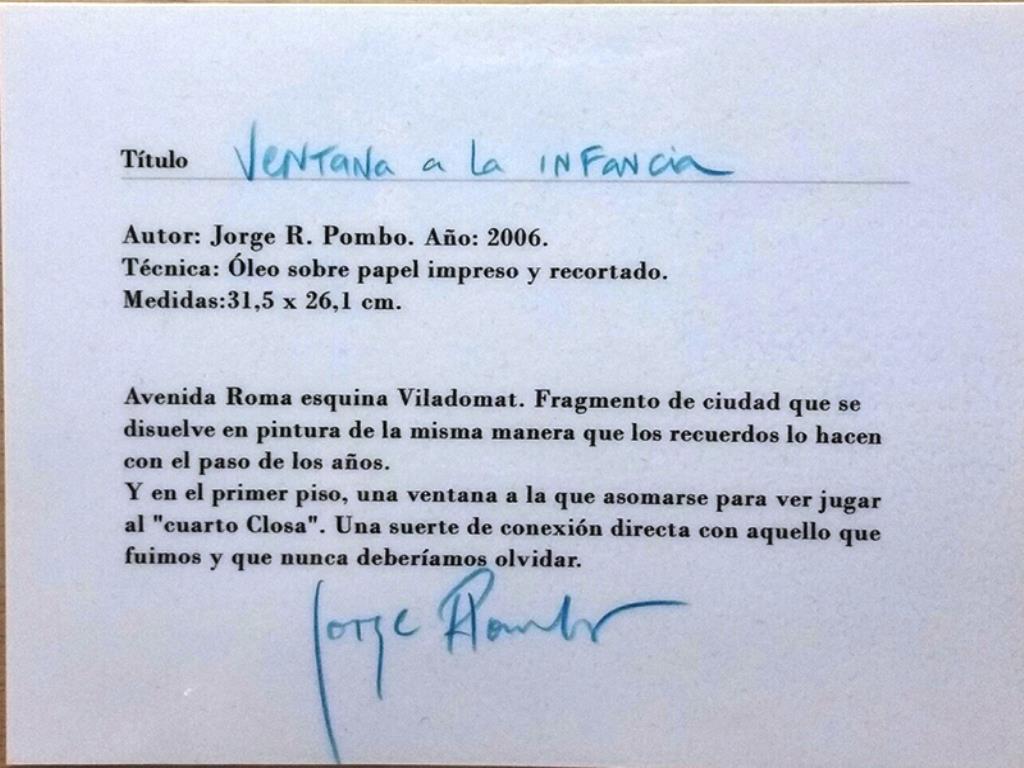 Título Ventana a la infancia
Autor: Jorge R. Pombo. Año: 2006.
Técnica: Óleo sobre papel impreso y recortado.
Medidas:31,5 x 26,1 cm.
Avenida Roma esquina Viladomat. Fragmento de ciudad que se
disuelve en pintura de la misma manera que los recuerdos lo hacen
con el paso de los años.
Y en el primer piso, una ventana a la que asomarse para ver jugar
al "cuarto Closa". Una suerte de conexión directa con aquello que
fuimos y que nunca deberíamos olvidar.
Jorge R Pombo